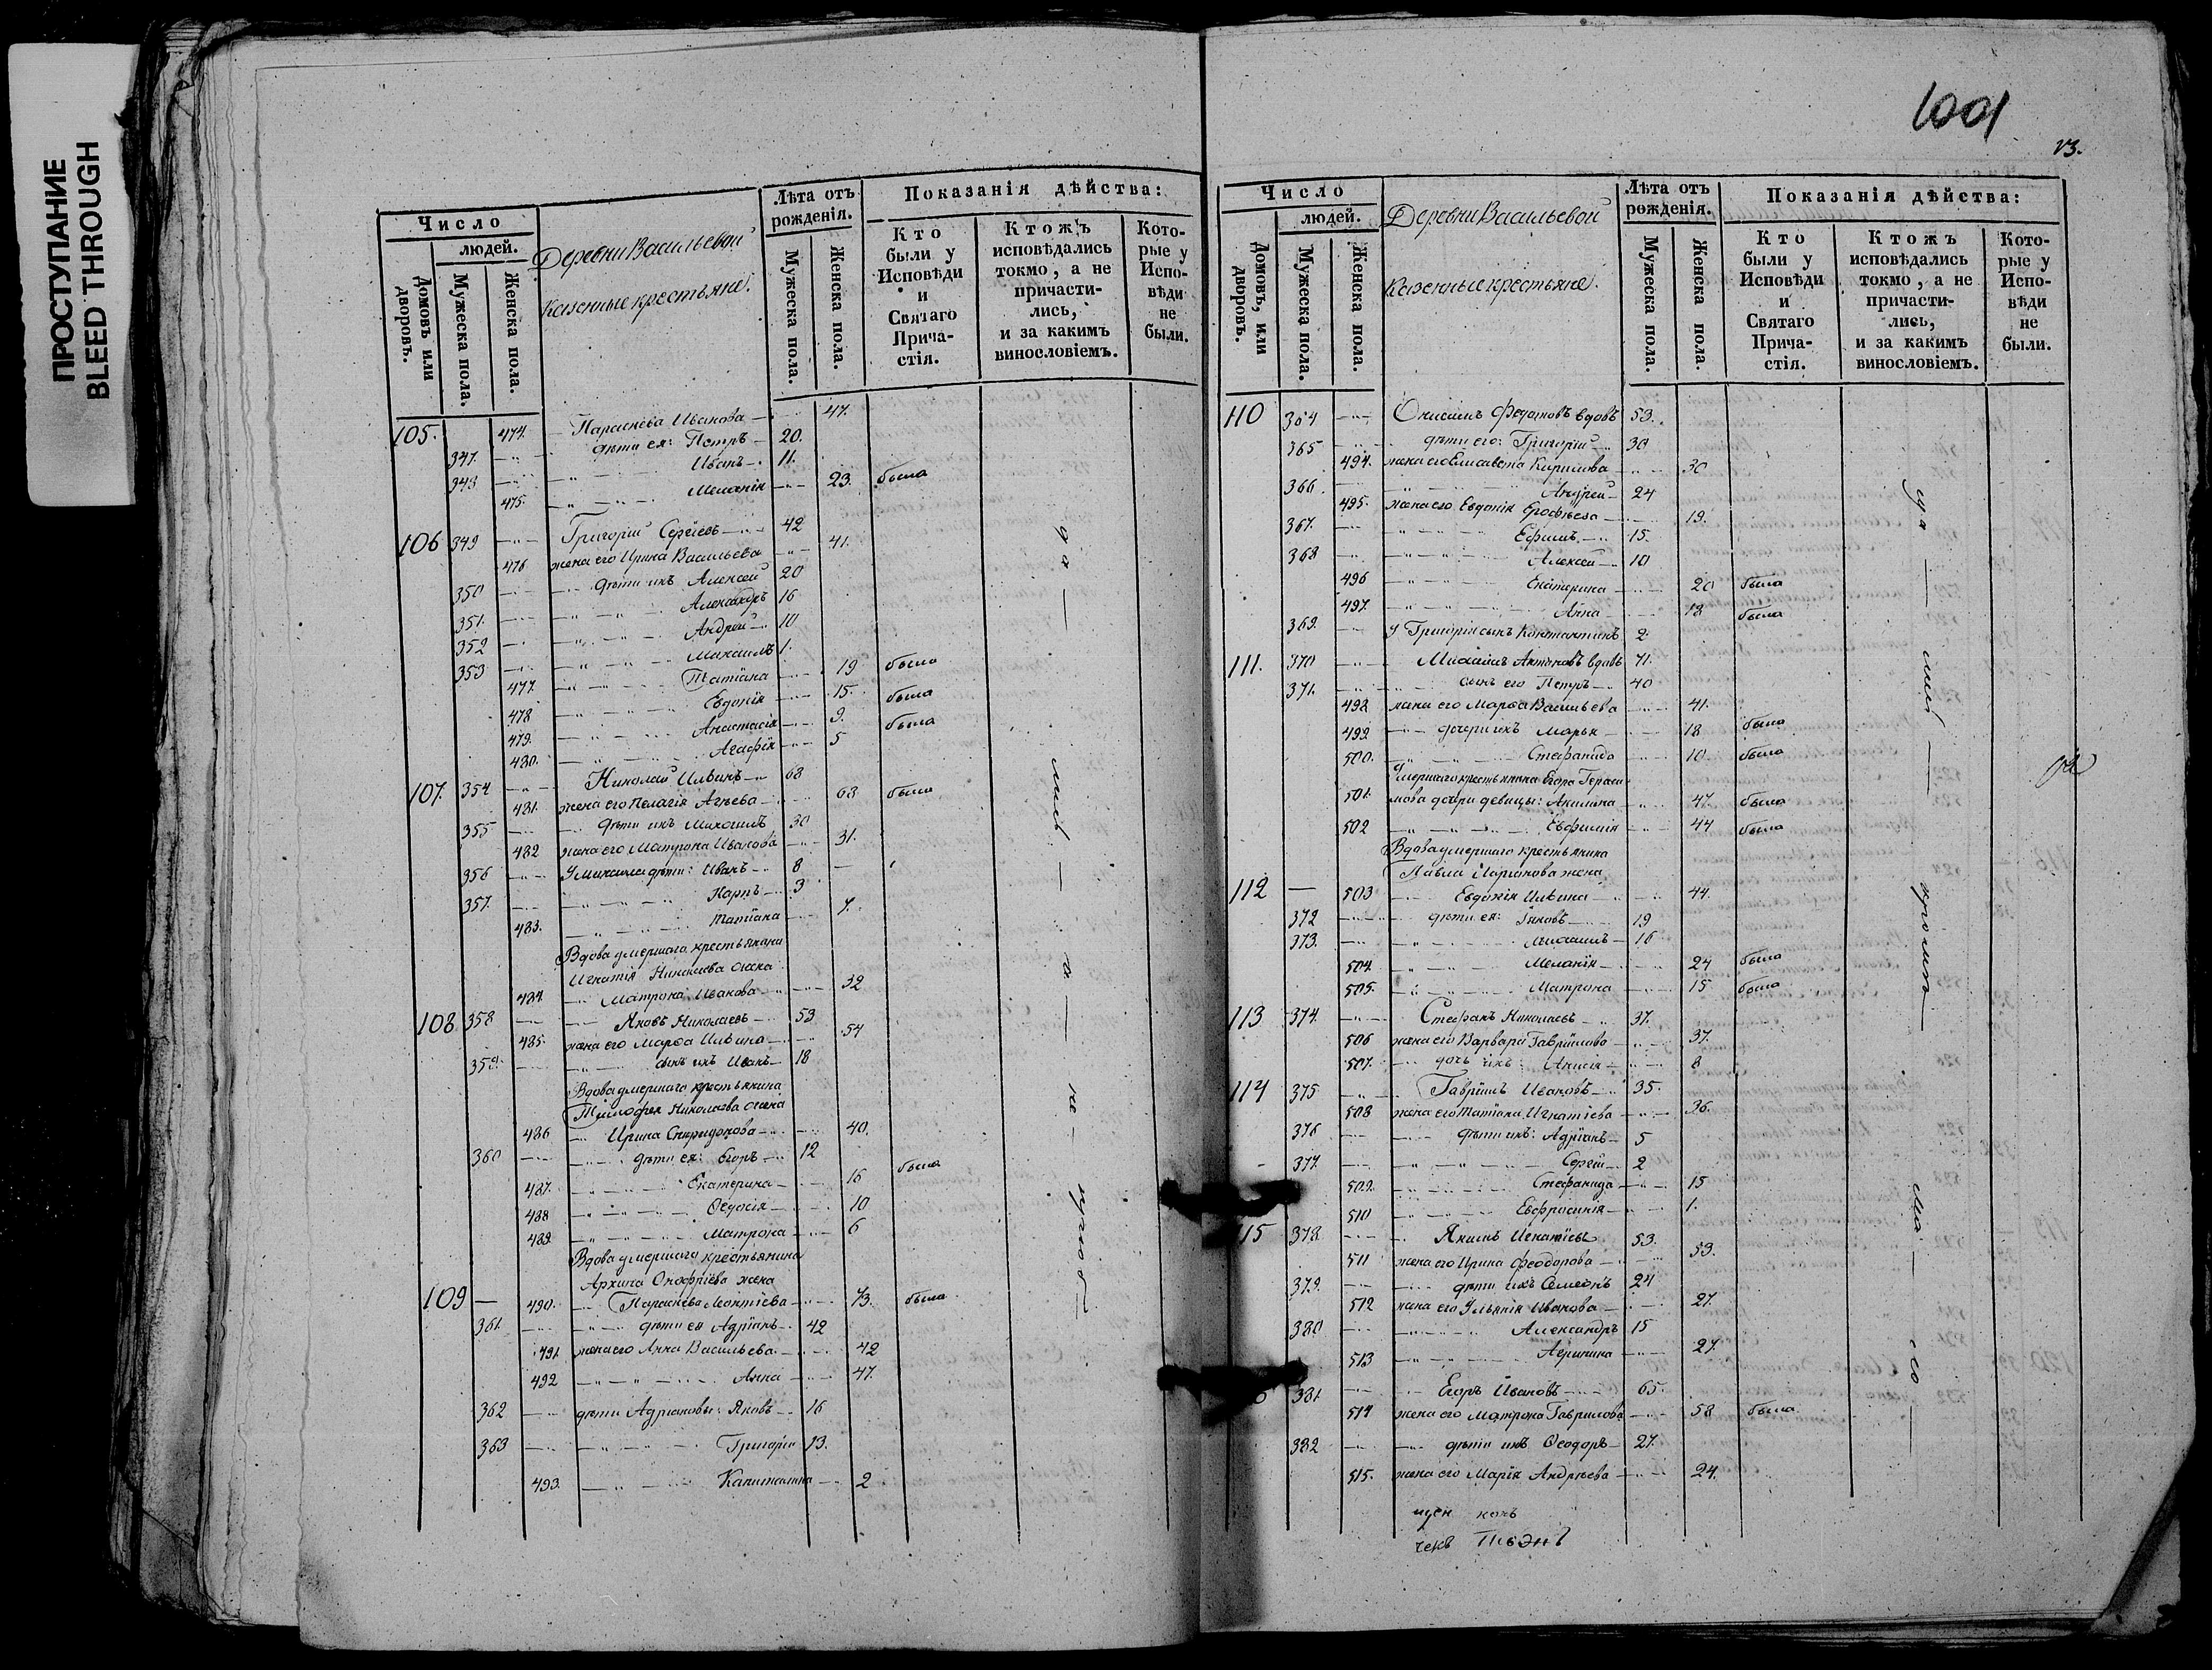 ПРОСТУПАНИЕ
BLEED THROUGH
Число
людей.
Домовъ или дворовъ.
Мужеска пола.
Женска пола.
Деревни Васильевой
Казенные крестьяне.
Лѣта отъ рожденія.
Мужеска пола.
Женска пола.
Показанія дѣйства:
Кто были у Исповѣди и Святаго Причастія.
Ктожъ исповѣдались токмо, а не причастились, и за какимъ винословіемъ.
Которые у Исповѣди не были.
105. 474. Параскева Иванова 47.
347. дѣти ея: Петръ 20.
348 Иванъ 11.
475. Меланія 23. была
106 349 Григорій Сергіевъ 42
476 жена его Ирина Васильева 41.
350 дѣти ихъ Алексей 20
351. Александръ 16
352 Андрей 10
353 Михаилъ 1.
477. Татіана 19 была
478 Евдокія 15. была
479. Анастасія 9. была
480. Агафія 5
107. 354 Николай Ильинъ 68
481. жена его Пелагія 68 была
355 дѣти ихъ Михаилъ 30
482 жена его Матрона Иванова 31.
356 У Михаила дѣти: Иванъ 8
357. Карпъ 3
483. Татіана 7.
Вдова умершаго крестьянина
Игнатія Николаева жена
484. Матрона Иванова 32
108 358 Яковъ Николаевъ 53
485. жена его Марѳа Ильина 54
359. сынъ ихъ Иванъ 18
Вдова умершаго крестьянина
Тимофея Николаева жена
486 Ирина Спиридонова 40.
360 дѣти ея: Егоръ 12
487. Екатерина 16 была
488 Ѳедосія 10
489. Матрона 6
Вдова умершаго крестьянина
Архипа Онофріева жена
109 — 490. Параскева 73. была
361. дѣти ея Адріанъ 42
491. жена его Анна Васильева 42
492 Анна 47.
362 дѣти Адріановы: Яковъ 16
363 Григорій 13.
493. Капитолина 2
1001
Число
людей.
Домовъ, или дворовъ.
Мужеска пола.
Женска пола.
Деревни Васильевой
Казенные крестьяне.
Лѣта отъ рожденія.
Мужеска пола.
Женска пола
Показанія дѣйства:
Кто были у Исповѣди и Святаго Причастія.
Ктожъ исповѣдались токмо, а не причастились, и за какимъ винословіемъ.
Которые у Исповѣди не были.
110 364 Онисимъ Федотовъ вдовъ 53.
365 дѣти его: Григорій 30
494. жена его Елисавета Кирилова 30
366. Андрей 24
495. жена его Евдокія Ерофѣева 19.
367. Ефимъ 15.
368 Алексей 10
496 Екатерина 20 была
497. Анна 18 была
369. У Григорія сынъ Константинъ 2
111. 370 Михаилъ Антоновъ вдовъ 71.
371. сынъ его Петръ 40
498 жена его Марѳа Васильева 41.
499 дочери ихъ Марья 18 была
500. Стефанида 10. была
Умершаго крестьянина Егора Гераси
501. мова дочери девицы: Акилина 47. была
502 Евфимія 44 была
Вдова умершаго крестьянина
Павла жена
112 — 503 Евдокія Ильина 44.
372 дѣти ея: Яковъ 19
373. Михаилъ 16
504. Меланія 24 была
505. Матрона 15 была
113 374. Стефанъ Николаевъ 37.
506 жена его Варвара Гавріилова 37.
507. дочь ихъ: Анисія 8
114 375 Гавріилъ Ивановъ 35.
508 жена его Татіана Игнатіева 36.
376 дѣти ихъ: Адріанъ 5
377. Сергій 2
509. Стефанида 15
510 Евфросинія 1.
115 378 Якимъ Игнатіевъ 53.
511 жена его Ирина Феодорова 53.
379. дѣти ихъ Семеонъ 24
512 жена его Ульянія Иванова 27.
380 Александръ 15
513 Агрипина 27.
381. Егоръ Ивановъ 65.
514 жена его Матрона Гаврилова 58 была
382 дѣти ихъ Ѳеодоръ 27.
515. жена его Марія Андрѣева 24.